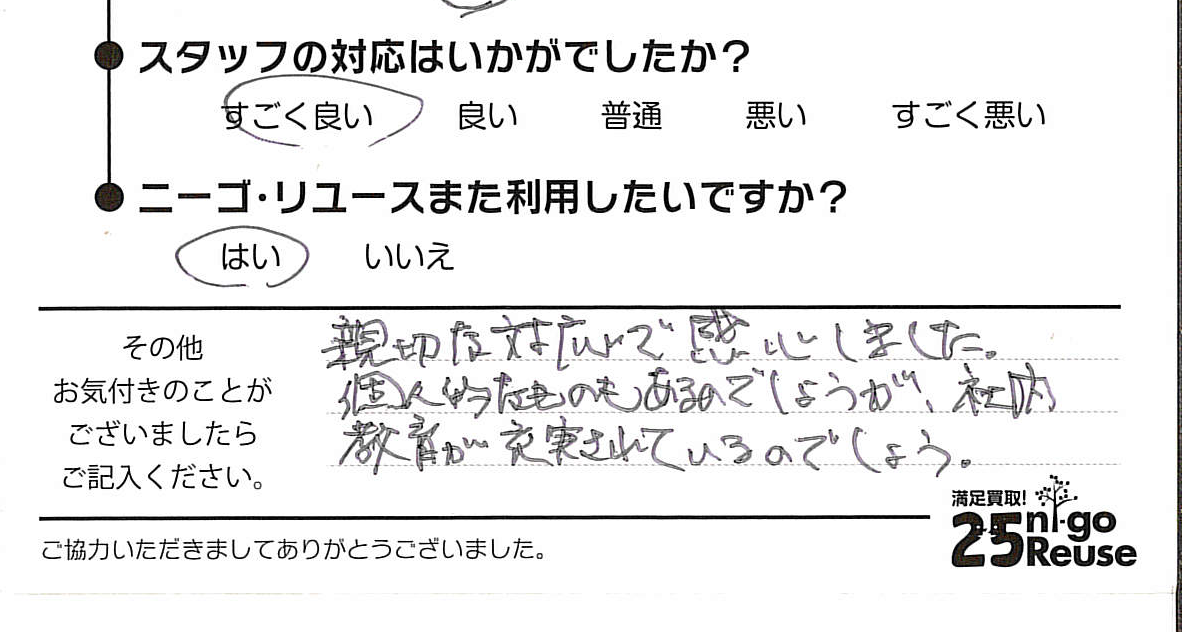 スタッフの対応はいかがでしたか？
すごく良い 良い 普通 悪い すごく悪い
ニーゴ・リユースまた利用したいですか？
はい いいえ
その他
お気付きのことが
ございましたら
ご記入ください。
親切な対応で感心しました。
個人的なものもあるのでしょうが、社内
教育が充実されているのでしょう。
満足買取!
25 ni-go
Reuse
ご協力いただきましてありがとうございました。